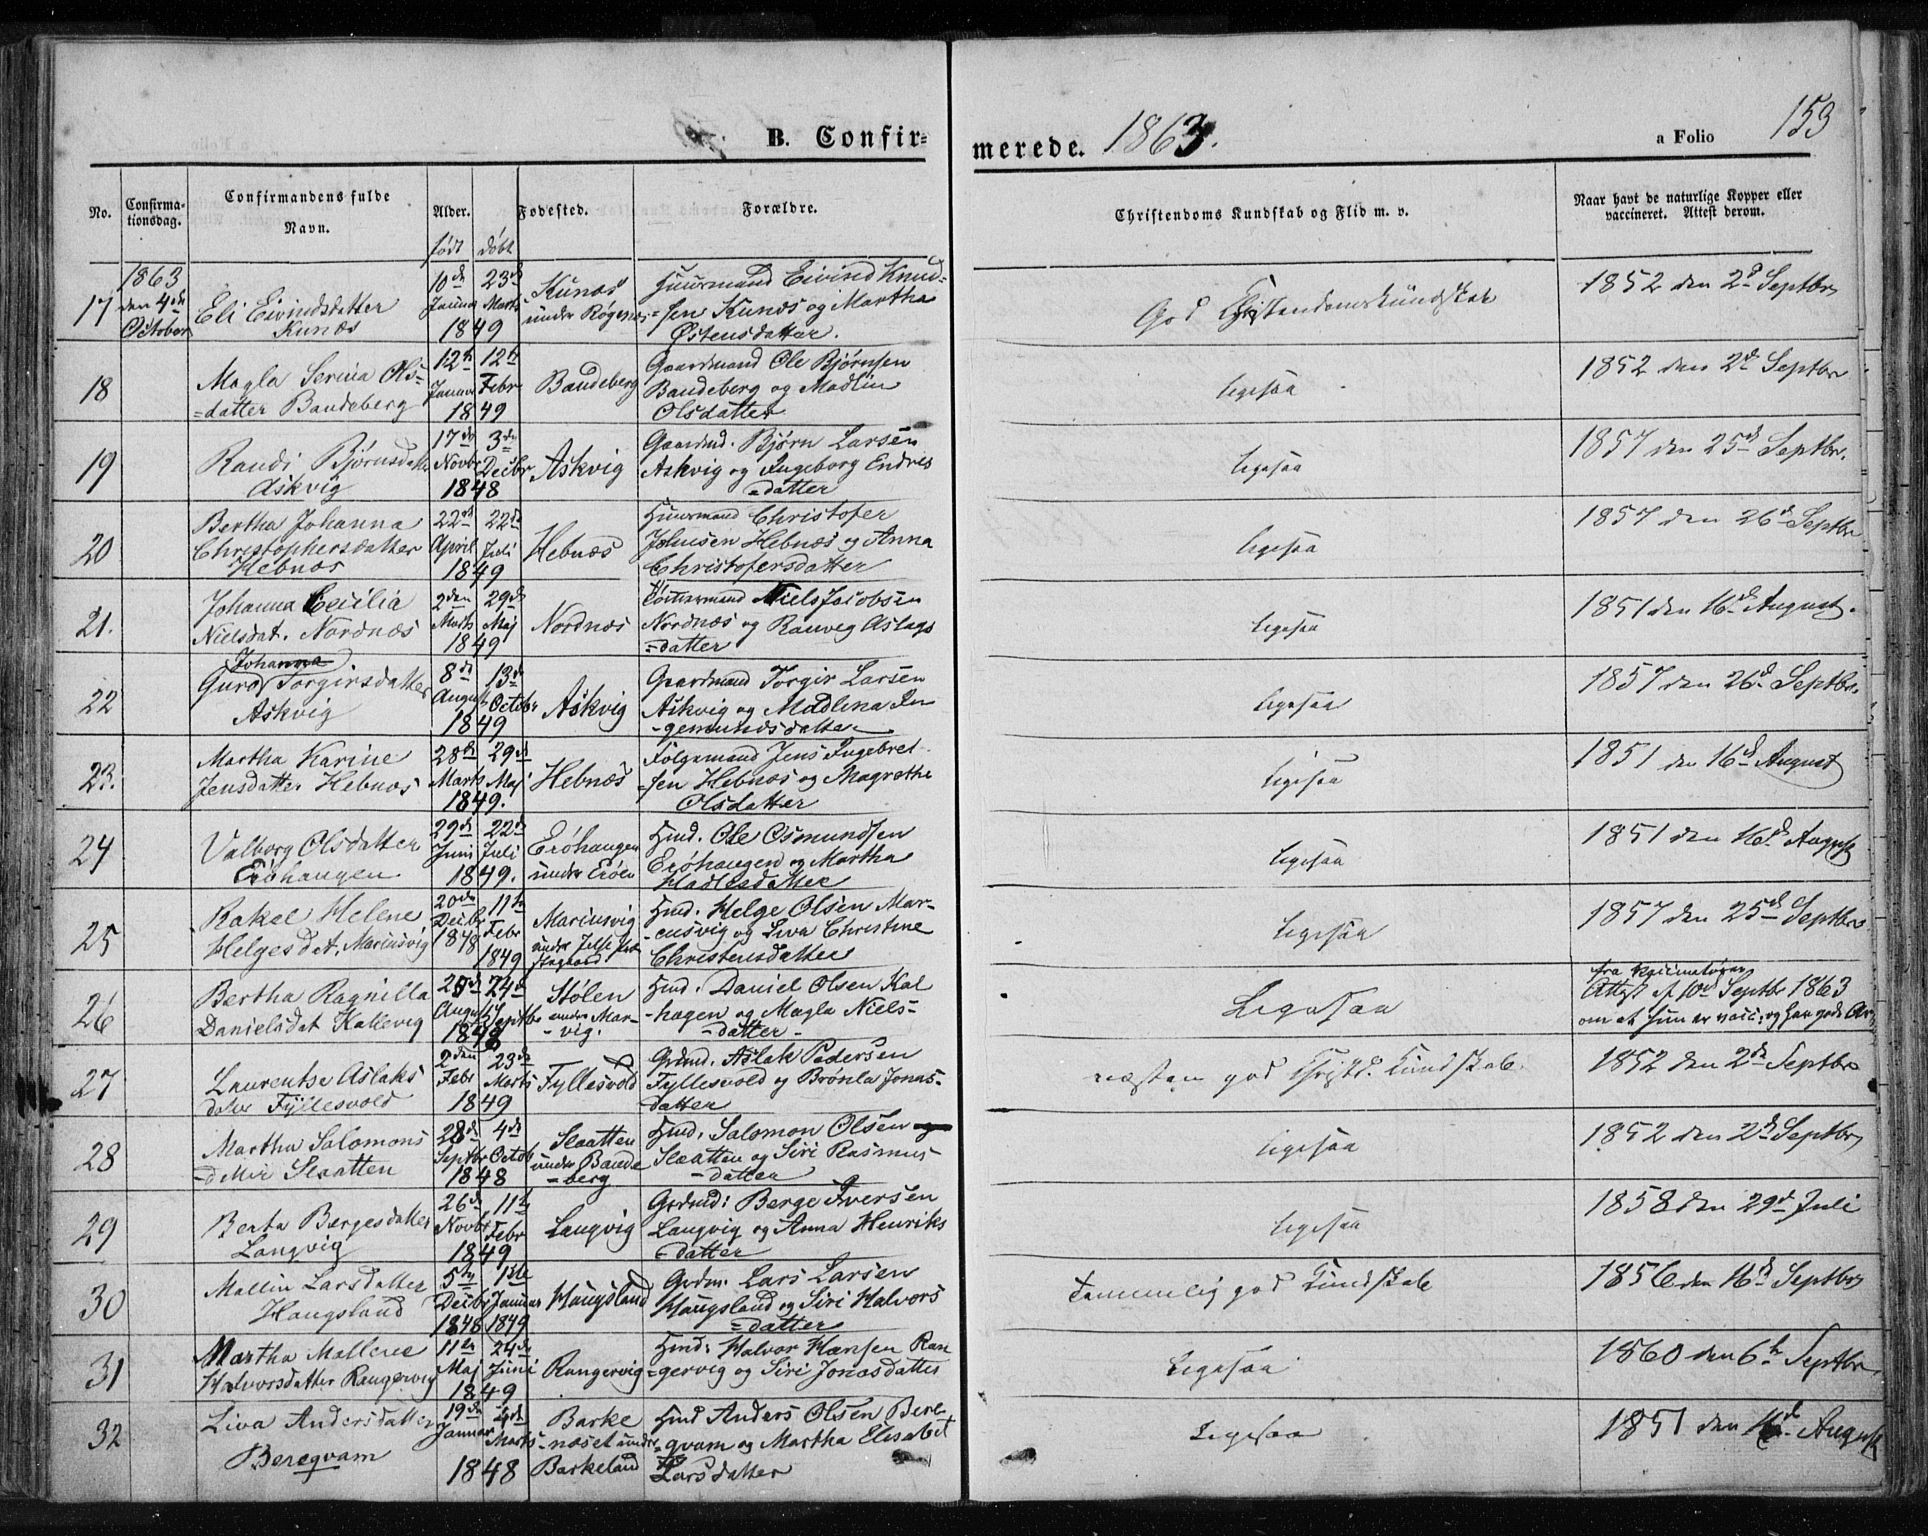 B. Confir=
merede. 1863.
a Folio 153
No.
Confirma-
tionsdag.
Confirmandens fulde
Navn.
Alder.
født døbt
Fødested.
Forældre.
Christendoms Kundskab og Flid m. v.
Naar havt de naturlige Kopper eller
vaccineret. Attest derom.
1863
17 den 4de October
Eli Eivindsdatter
Kunæs
10de Januar 23de Marts
1849
Kunæs
under Røgenæs
Huusmand Eivind Knud=
=sen Kunæs og Martha
Østensdatter.
God Christendomskundskab
1852 den 2d Septbr
18
Magla Serina Ols=
=datter Bandeberg
12te Januar 12te Febr
1849
Bandeberg
Gaardmand Ole Bjørnsen
Bandeberg og Madlin
Olsdatter
ligesaa
1852 den 2d Septbr
19
Randi Bjørnsdatter
Askvig
17de Novbr 3de Decbr
1848
Askvig
Gaardmd. Bjørn Larsen
Askvig og Ingeborg Endres
=datter
ligesaa
1857 den 25de Septbr.
20
Bertha Johanna
Christophersdatter
Hebnæs
22de April 22de Juli
1849
Hebnæs
Huusmand Christofer
Johnsen Hebnæs og Anna
Christofersdatter
ligesaa
1857 den 26d Septbr
21.
Johanna Cecilia
Nielsdat. Nordnæs
2den Marts 29de Maj
1849
Nordnæs
Niels Jacobsen
Nordnæs og Ranveg Aslags
=datter
ligesaa
1851 den 16d August.
22
Johanna
Guro Torgirsdatter
Askvig
8de August 13de Octobr
1849
Askvig
Gaardmand Torgir Larsen
Askvig og Madlena In
-gemundsdatter
ligesaa
1857 den 26d. Septbr.
23.
Martha Karine
Jensdatter Hebnæs
28de Marts 29de Maj
1849.
Hebnæs
Følgemand Jens Ingebret
=sen Hebnæs og Magrethe
Olsdatter
ligesaa
1851 den 16d August
24
Valborg Olsdatter
Erøhaugen
29de Juni 22de Juli
1849.
Erøhaugen
under Erøen
Hmd. Ole Osmundsen
Erøhaugen og Martha
Hadlesdatter
ligesaa
1851 den 16d. August
25
Rakel Helene
Helgesdat. Mariusvig
20de Decbr 1848 11te Febr
1849
Mariusvig
under Jelse
Hmd. Helge Olsen Mar-
-cusvig og Liva Christine
Christensdatter
ligesaa
1857 den 25de Septbr
26
Bertha Ragnilla
Danielsdat Kallevig
August 24de Septbr
Stølen
under Mar-
-vig.
Hmd. Daniel Olsen Kal
-hagen og Magla Niels-
-datter-
Ligesaa
fra Vaccinatøren
Attest af 10de Septbr 1863
om at hun er vacc. og har gode Ar
27
Laurentse Aslaks
datter Fyllesvold
2den Febr 23de Marts
1849
Fyllesvold
Grdmd. Aslak Pedersen
Fyllesvold og Brønla Jonas-
datter
næsten god Christd. Kundskab.
1852 den 2de Septbr
28
Martha Salomons
-datter Slaatten
28de Septbr 4de Octob
1848
Slaatten
under Bande
-berg
Hmd. Salomon Olsen
Slaatten og Siri Rasmus-
-datter
ligesaa
1852 den 2de Septbr
29
Berta Bergesdatter
Langvig
26de Novbr 11te Febr
1849
Langvig
Grdmd: Berge Iversen
Langvig og Anna Henriks
=datter
ligesaa
1858 den 29d Juli
30
Mallin Larsdatter
Haugsland
5te Decbr 1ste Januar
1848 1849
Haugsland
Grdm. Lars Larsen
Haugsland og Siri Halvors
=datter
Temmelig god Kundskab
1856 den 16d Septbr
31
Martha Mallene
Halvorsdatter Rangervig
11te Maj 24de Juni
1849
Rangervig
Hmd: Halvor Hansen Ran
-gervig og Siri Jonasdatter
Ligesaa
1860 den 6te Septbr
32
Liva Andersdatter
Beregvam
19de Januar 4de Marts
1848
Barke
-næset under
Barkeland
Hmd Anders Olsen Bere-
-gvam og Martha Elisabet
Larsdatter
Ligesaa
1851 den 16d. August